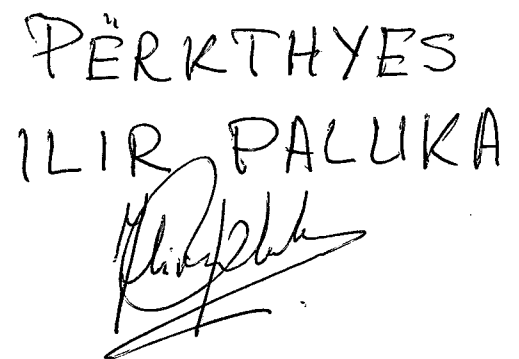 PËRKTHYES
ILIR PALUKA